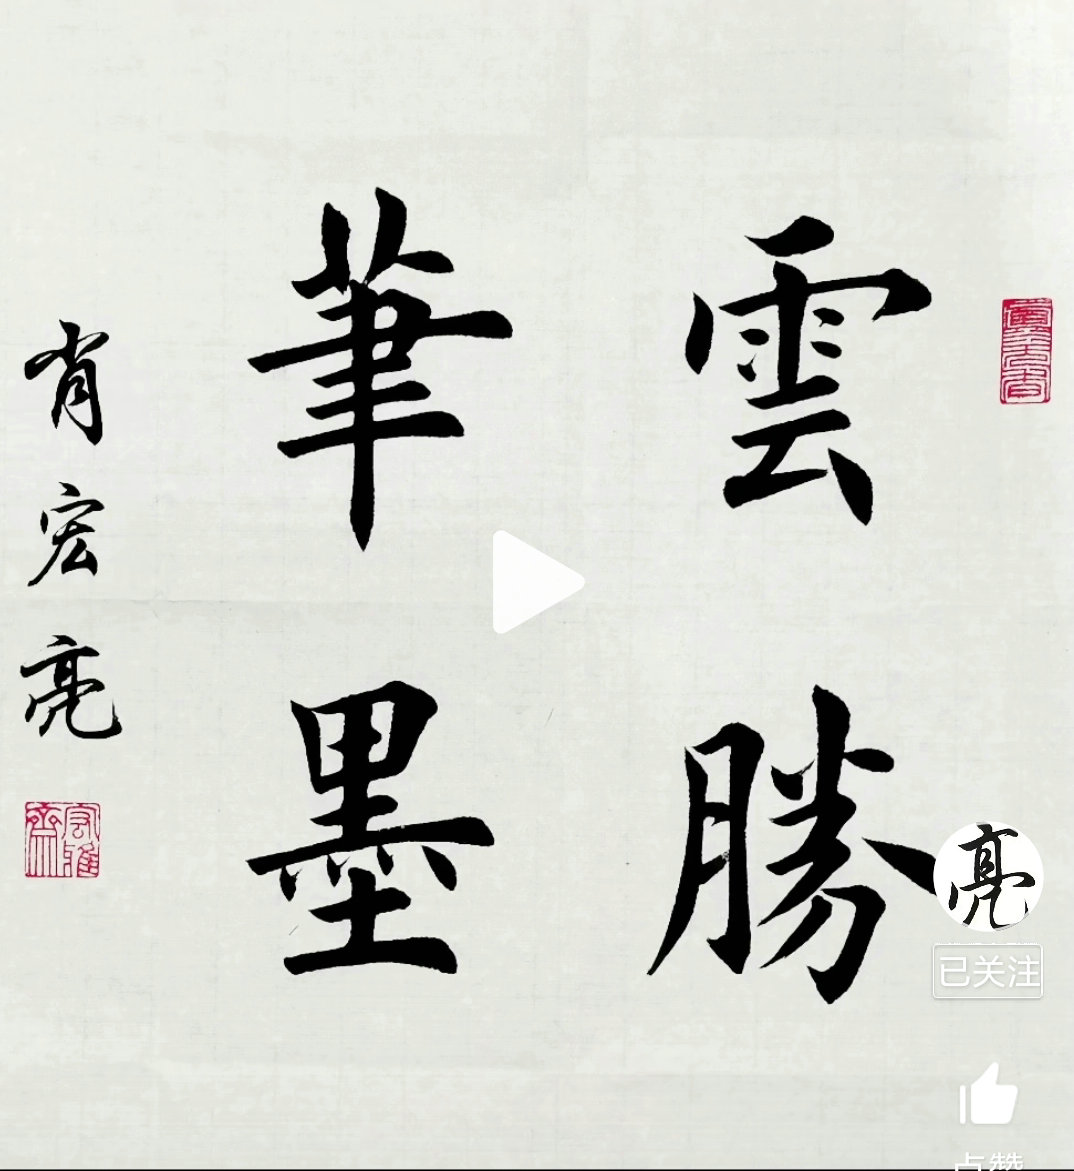 雲勝
筆墨
肖宏亮
亮
已关注
点赞